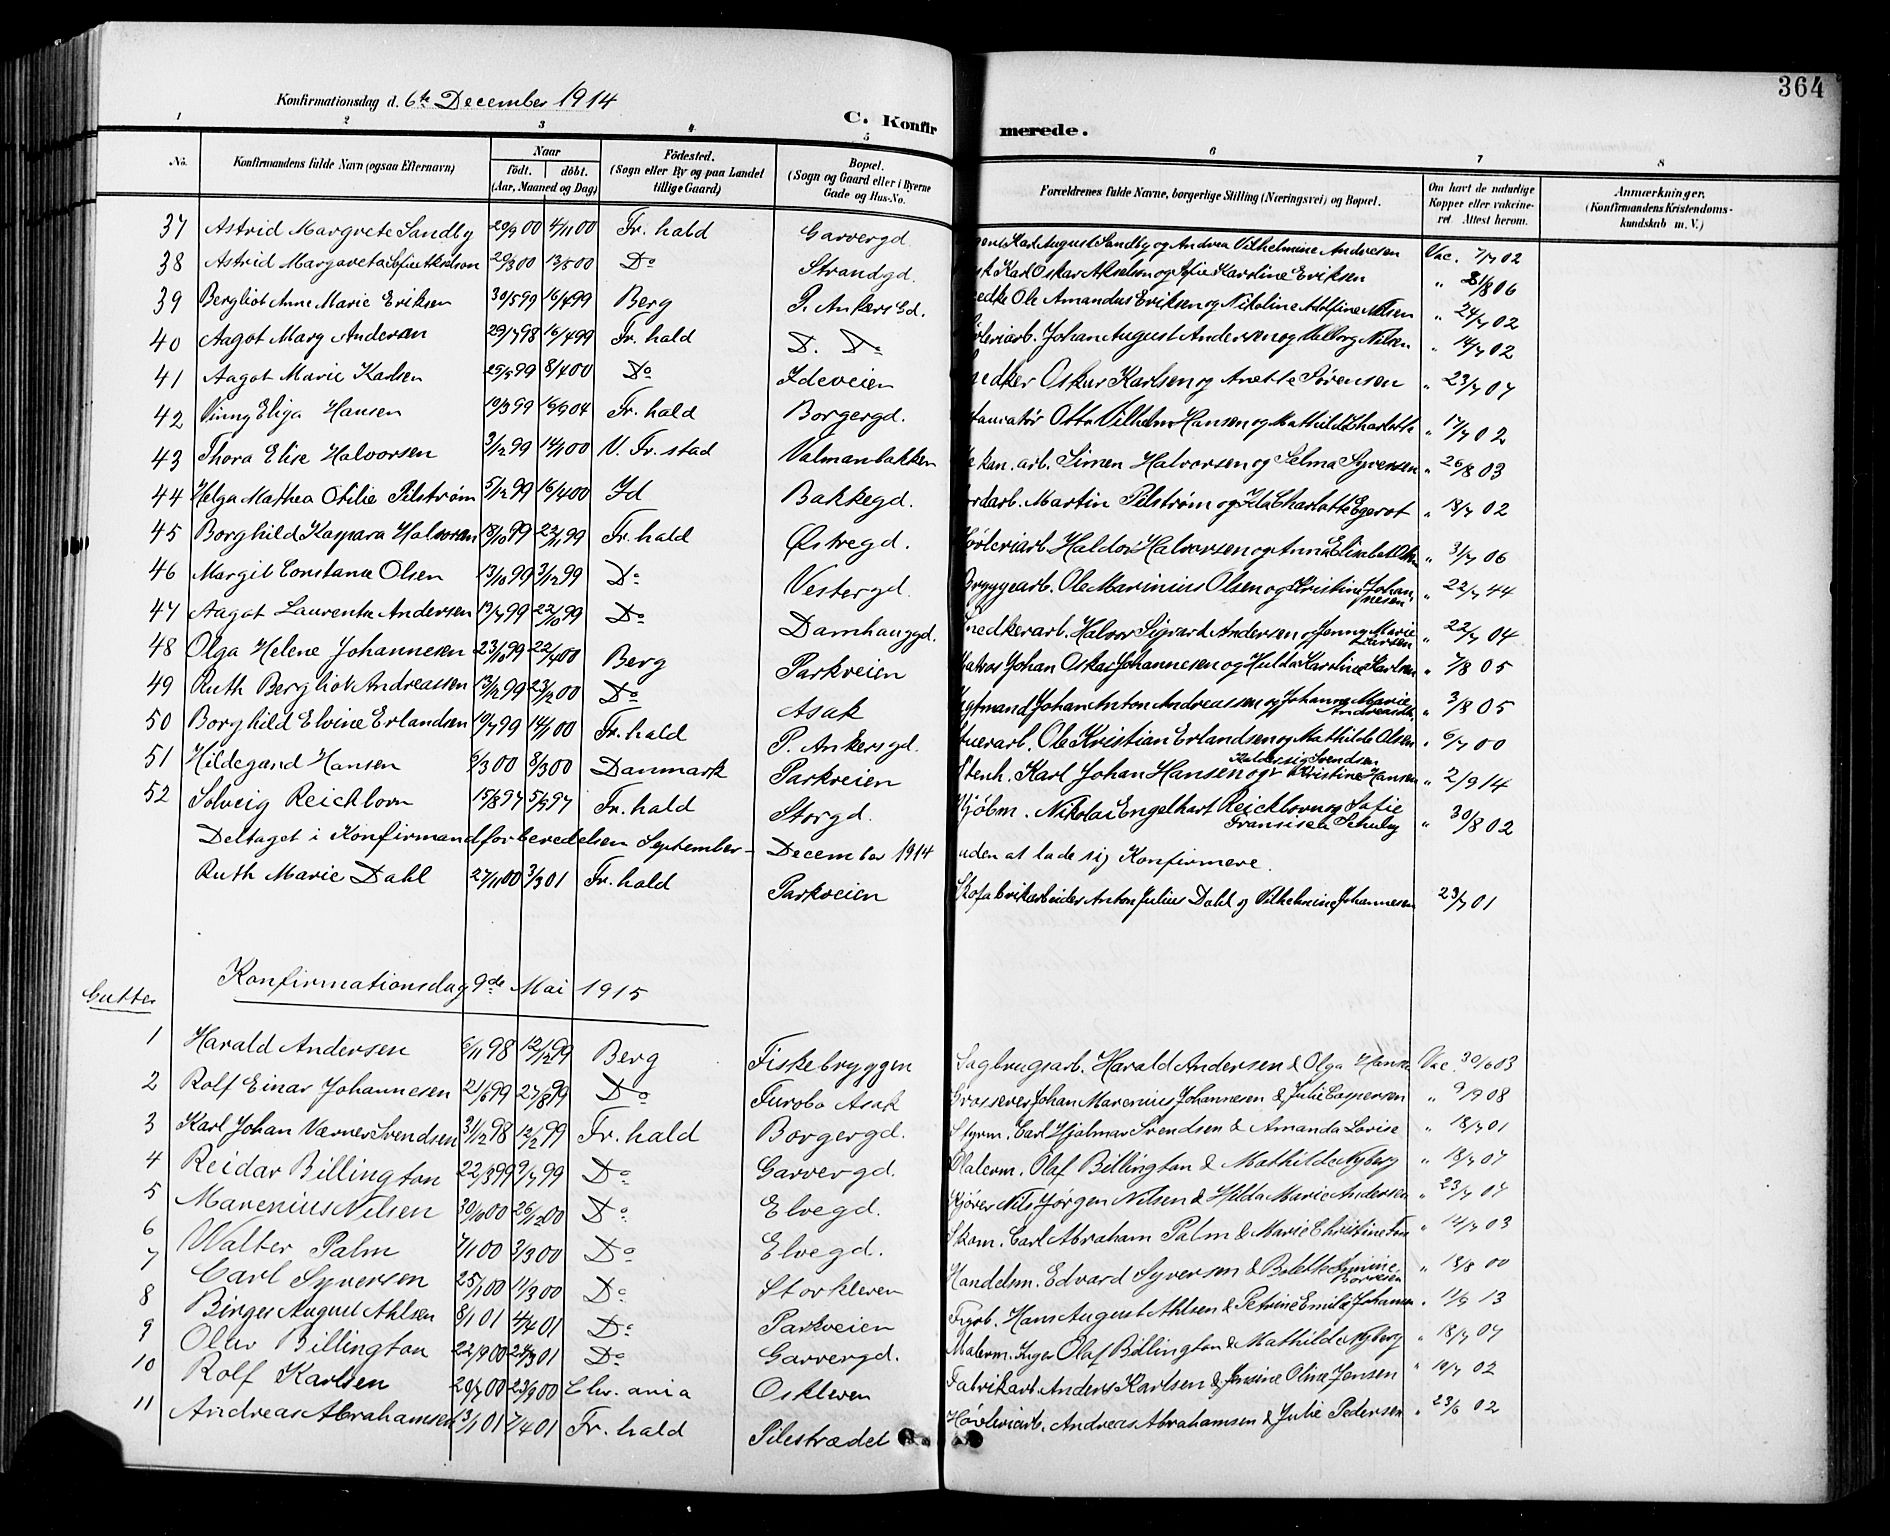 364
Konfirmationsdag d. 6te December 1914
C. Konfirmerede.
1 2 3 4 5 6 7 8
No. Konfirmandens fulde Navn (ogsaa Efternavn) Naar født. døbt. (Aar, Maaned og Dag) Födested. (Sogn eller By og paa Landet tillige Gaard) Bopæl. (Sogn og Gaard eller i Byerne Gade og Hus-No. Forældrenes fulde Navne, borgerlige Stilling (Næringsvei) og Bopæl. Om havt de naturlige Kopper eller vakcineret. Attest herom. Anmærkninger. (Konfirmandens Kristendomskundskab m. V.)
37 Astrid Margrete Sandby 29/9 00 4/11 00 Fr. hald Garvergd. Karl August Sandby og Andrea Vilhelmine Andresen Vac. 7/7 02
38 Astrid Margareta Sofie Akselson 29/3 00 13/5 00 Do Strandgd. Karl Oskar Akselsen og Sofie Karoline Eriksen " 31/8 06
39 Bergliot Anne Marie Eriksen 30/5 99 16/4 99 Berg P. Ankers Gd. Ole Amandus Eriksen og Nikoline Adolfine Nilsen " 24/7 02
40 Aagot Marg Andersen 29/7 98 16/4 99 Fr. hald D. Do Johan August Andersen og Valborg Nilsen " 14/7 02
41 Aagot Marie Karlsen 25/5 99 8/4 00 Do Ideveien Oskar Karlsen og Anette Sørensen " 23/7 07
42 Vinny Eliza Hansen 19/3 99 16/9 04 Fr. hald Borgergd. Otto Vilhelm Hansen og Mathilde Charlotte " 17/7 02
43 Thora Elise Halvorsen 3/12 99 14/1 00 V. Fr. stad Valmanbakken arb. Simen Halvorsen og Selma Syversen " 26/8 03
44 Helga Mathea Otilie Pilstrøm 5/12 99 16/4 00 Id Bakkegd. Martin Pilstrøm og Ida Charlotte Egerot " 18/7 02
45 Borghild Kaspara Halvorsen 18/10 99 22/11 99 Fr. hald Østregd. Høvleriarb. Haldor Halvorsen og Anna Elisabet " 3/7 06
46 Margit Constance Olsen 13/10 99 3/12 99 Do Vestergd. Bryggearb. Ole Marinius Olsen og Kristine Johannesen " 22/7 44
47 Aagot Laurentse Andersen 19/7 99 22/10 99 Do Damhauggd. Snedkerarb. Halvor Sigvard Andersen og Jenny Marie Larsen " 22/7 04
48 Olga Helene Johannesen 23/10 99 22/4 00 Berg Parkveien Matros Johan Oskar Johannesen og Hulda Karoline Karlsen " 7/8 05
49 Ruth Bergliot Andreassen 13/12 99 23/2 00 Do Asak Johan Anton Andreassen og Johanne Marie " 3/8 05
50 Borghild Elvine Erlandsen 19/7 99 14/1 00 Fr. hald P. Ankersgd. Ole Kristian Erlandsen og Mathilde Olsen " 6/7 00
51 Hildegard Hansen 6/3 00 8/3 00 Danmark Parkveien Stenh. Karl Johan Hansen og Kristine Hansen Kalder sig Svendsen " 2/9 14
52 Solveig Reichborn 15/8 97 5/9 97 Fr. hald Storgd. Kjøbm. Nikolai Engelhart Reichborn og Sofie Fransisca Schulz " 30/8 02
Deltaget i Konfirmandforberedelsen September - December 1914 uden at lade sig Konfirmere.
Ruth Marie Dahl 27/11 00 3/3 01 Fr. hald Parkveien Skofabrikarbeider Anton Julius Dahl og Vilhelmine Johannesen 23/7 01
Konfirmationsdag 9de Mai 1915
Gutter
1 Harald Andersen 6/11 98 12/12 99 Berg Fiskebryggen Sagbrugsarb. Harald Andersen & Olga Hansen Vac. 30/6 03
2 Rolf Einar Johannesen 21/6 99 27/8 99 Do Furobo Asak Grosserer Johan Marenius Johannesen & Julie Caspersen " 9/9 08
3 Karl Johan Værner Svendsen 31/12 98 12/2 99 Fr. hald Borgergd. Styrm. Carl Hjalmar Svendsen & Amanda Lovise " 18/7 01
4 Reidar Billington 22/3 99 9/7 99 Do Garvergd. Malerm. Olaf Billington & Mathilde Nyberg " 18/7 07
5 Marenius Nilsen 30/10 00 26/12 00 Do Elvegd. Kjører Nils Jørgen Nilsen & Hilda Marie Andersen " 23/7 07
6 Walter Palm 7/1 00 3/3 00 Do Elvegd. Skom. Carl Abraham Palm & Marie Christine " 14/7 03
7 Carl Syversen 25/1 00 11/3 00 Do Storkleven Handelsm. Edvard Syversen & Bolette " 18/8 00
8 Birger August Ahlsen 8/1 01 4/4 01 Do Parkveien Fyrb. Hans August Ahlsen & Petrine Emilie Johansen " 11/9 13
9 Olav Billington 22/9 00 24/3 01 Do Garvergd. Malerm. Inger Olaf Billington & Mathilde Nyberg " 18/7 07
10 Rolf Karlsen 20/7 00 23/9 00 Chr. ania Oskleven Fabrikarb Anders Karlsen & Jensine Oline Jensen " 19/7 02
11 Andreas Abrahamsen 13/1 01 7/4 01 Fr. hald Pilestrædet Høvleriarb. Andreas Abrahamsen & Julie Pedersen " 23/6 02